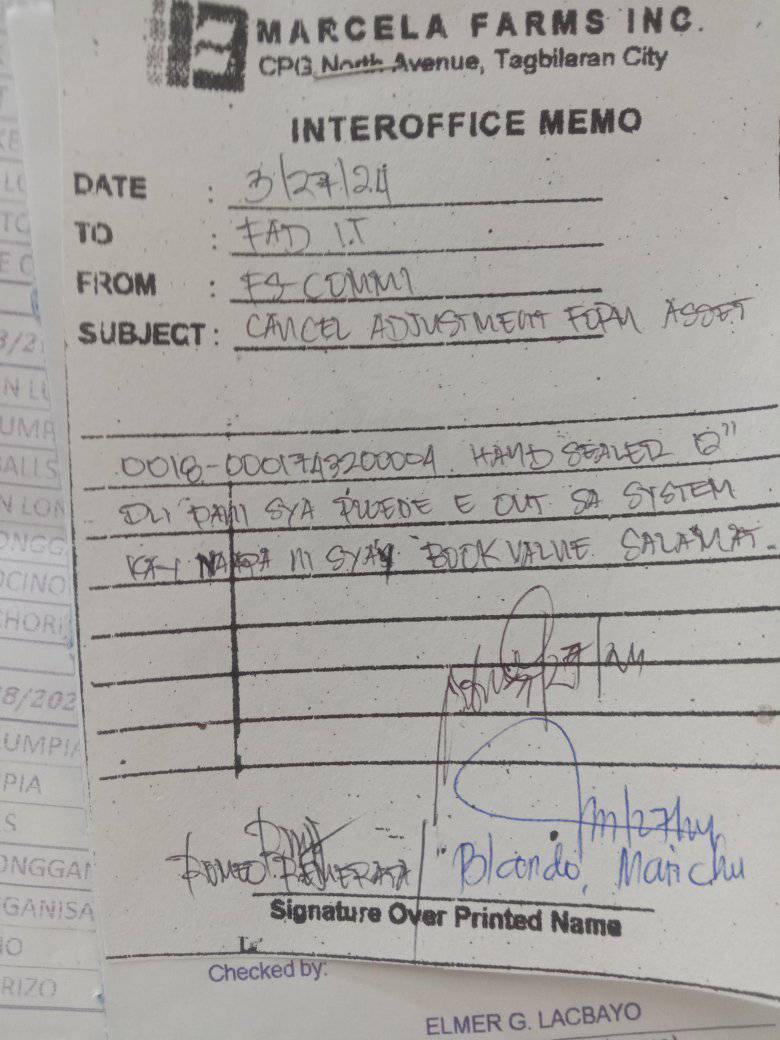 MARCELA FARMS INC.
CPG North Avenue, Tagbilaran City
INTEROFFICE MEMO
DATE : 3/27/24
TO : FAD I.T
FROM : FS-COMMI
SUBJECT : CANCEL ADJUSTMENT FORM ASSET
0018-0001743200004 HAND SEALER 12"
DLI PAMI SYA PWEDE E OUT SA SYSTEM
KAY NAAPA NI SYAY BOOK VALUE. SALAMAT.
ROMEO
Blando, Marichu
Signature Over Printed Name
Checked by:
ELMER G. LACBAYO
3/2
N LU
UMP
BALLS
N LON
ONGG
OCINO
CHORI
8/202
UMPIA
PIA
S
ONGGAN
GANISA
NO
RIZO